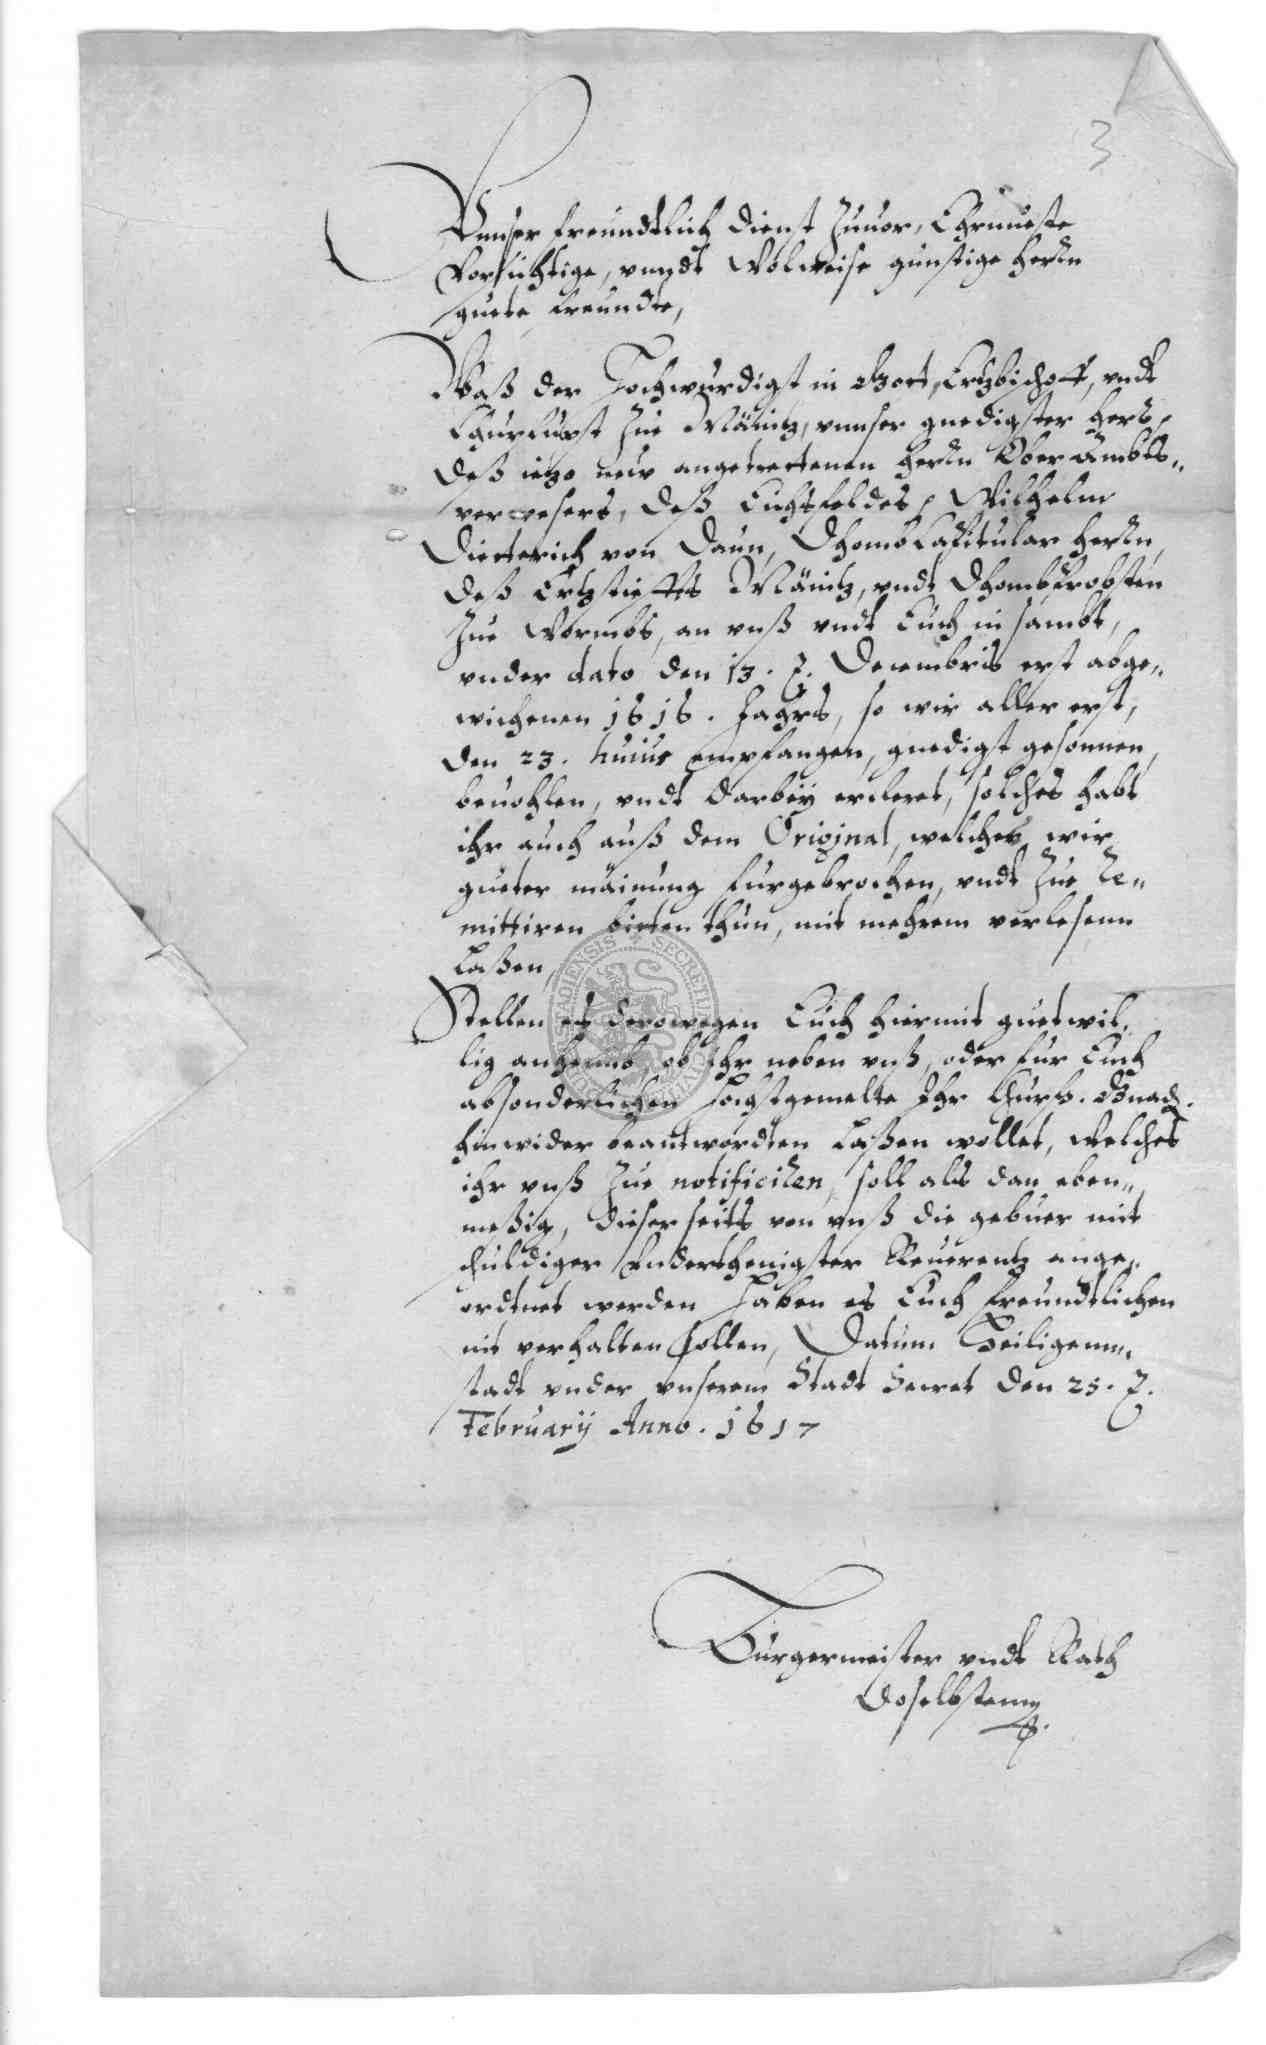 3
Vnnser freündtlich dienst zuuor, Ehrnueste
Vorsichtige, vnndt Wolweise günstige Herrn
guete freündte,
Waß der Hochwürdigst in Gott, Ertzbischoff, vndt
Churfürst zue Mäintz, vnnser gnedigster Herr,
deß ietzo new angetrettenen Herrn Ober Ambts„
verwesers, deß Eichsfeldes, Wilhelm
Dietterich von Daun, Dhomb Capitular Herrn,
deß Ertzstieffts Mäintz, vndt Dhombprobsten
zue Wormbs, an vnß vndt Euch in sambt,
vnder dato den 13. Decembris erst abge„
wichenen 1616. Jahrs, so wir aller erst,
den 23. huius empfangen, gnedigst gesonnen,
beuohlen, vndt darbey ercleret, solches habt
ihr auch auß dem Original, welches wir
gueter mäinung fürgebrochen, vndt zue re„
mittiren bitten thun, mit mehrem verlesenn
laßen,
Stellen es derowegen Euch hiermit guetwil,
lig anheimb, ob ihr neben vnß, oder für Euch
absonderlichen höchstgemelte Ihr Churf. Gnad.
hinwider beantwordten laßen wollet, welches
ihr vnß zue notificiren, soll als dan eben„
meßig, dieser seits von vnß die gebüer mit
schuldiger vnderthenigster Reuerentz ange„
ordtnet werden, haben es Euch freündtlichen
nit verhalten sollen, Datum Heiligenn„
stadt vnder vnserem Stadt Secret den 25.
February Anno. 1617
Bürgermeister vndt Rath
doselbsten
SECRETU